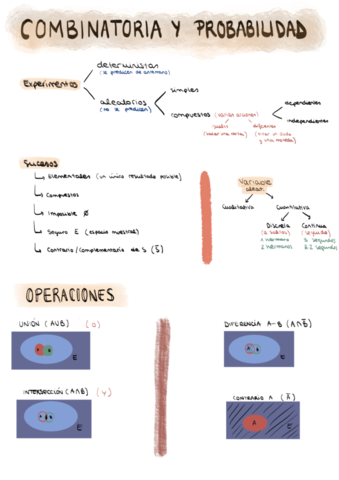 COMBINATORIA Y PROBABILIDAD
Experimentos
deterministas
(se predicen de antemano)
aleatorios
(no se predicen)
simples
compuestos (varias acciones)
dependientes
independientes
iguales
diferentes
(tirar un dado
y una moneda)
Sucesos
Elementales (un único resultado posible)
Compuestos
Imposible Ø
Seguro E (espacio muestral)
Contrario/complementario de S (S̅)
Variable
aleat.
Cualitativa
Cuantitativa
Discreta
1 hermano
2 hermanos
Continua
(segundo)
5 segundos
6.2 segundos
OPERACIONES
UNIÓN (AUB) (o)
E
DIFERENCIA A-B (A∩B̅)
E
INTERSECCIÓN (A∩B) (y)
E
CONTRARIO A (A̅)
A
E